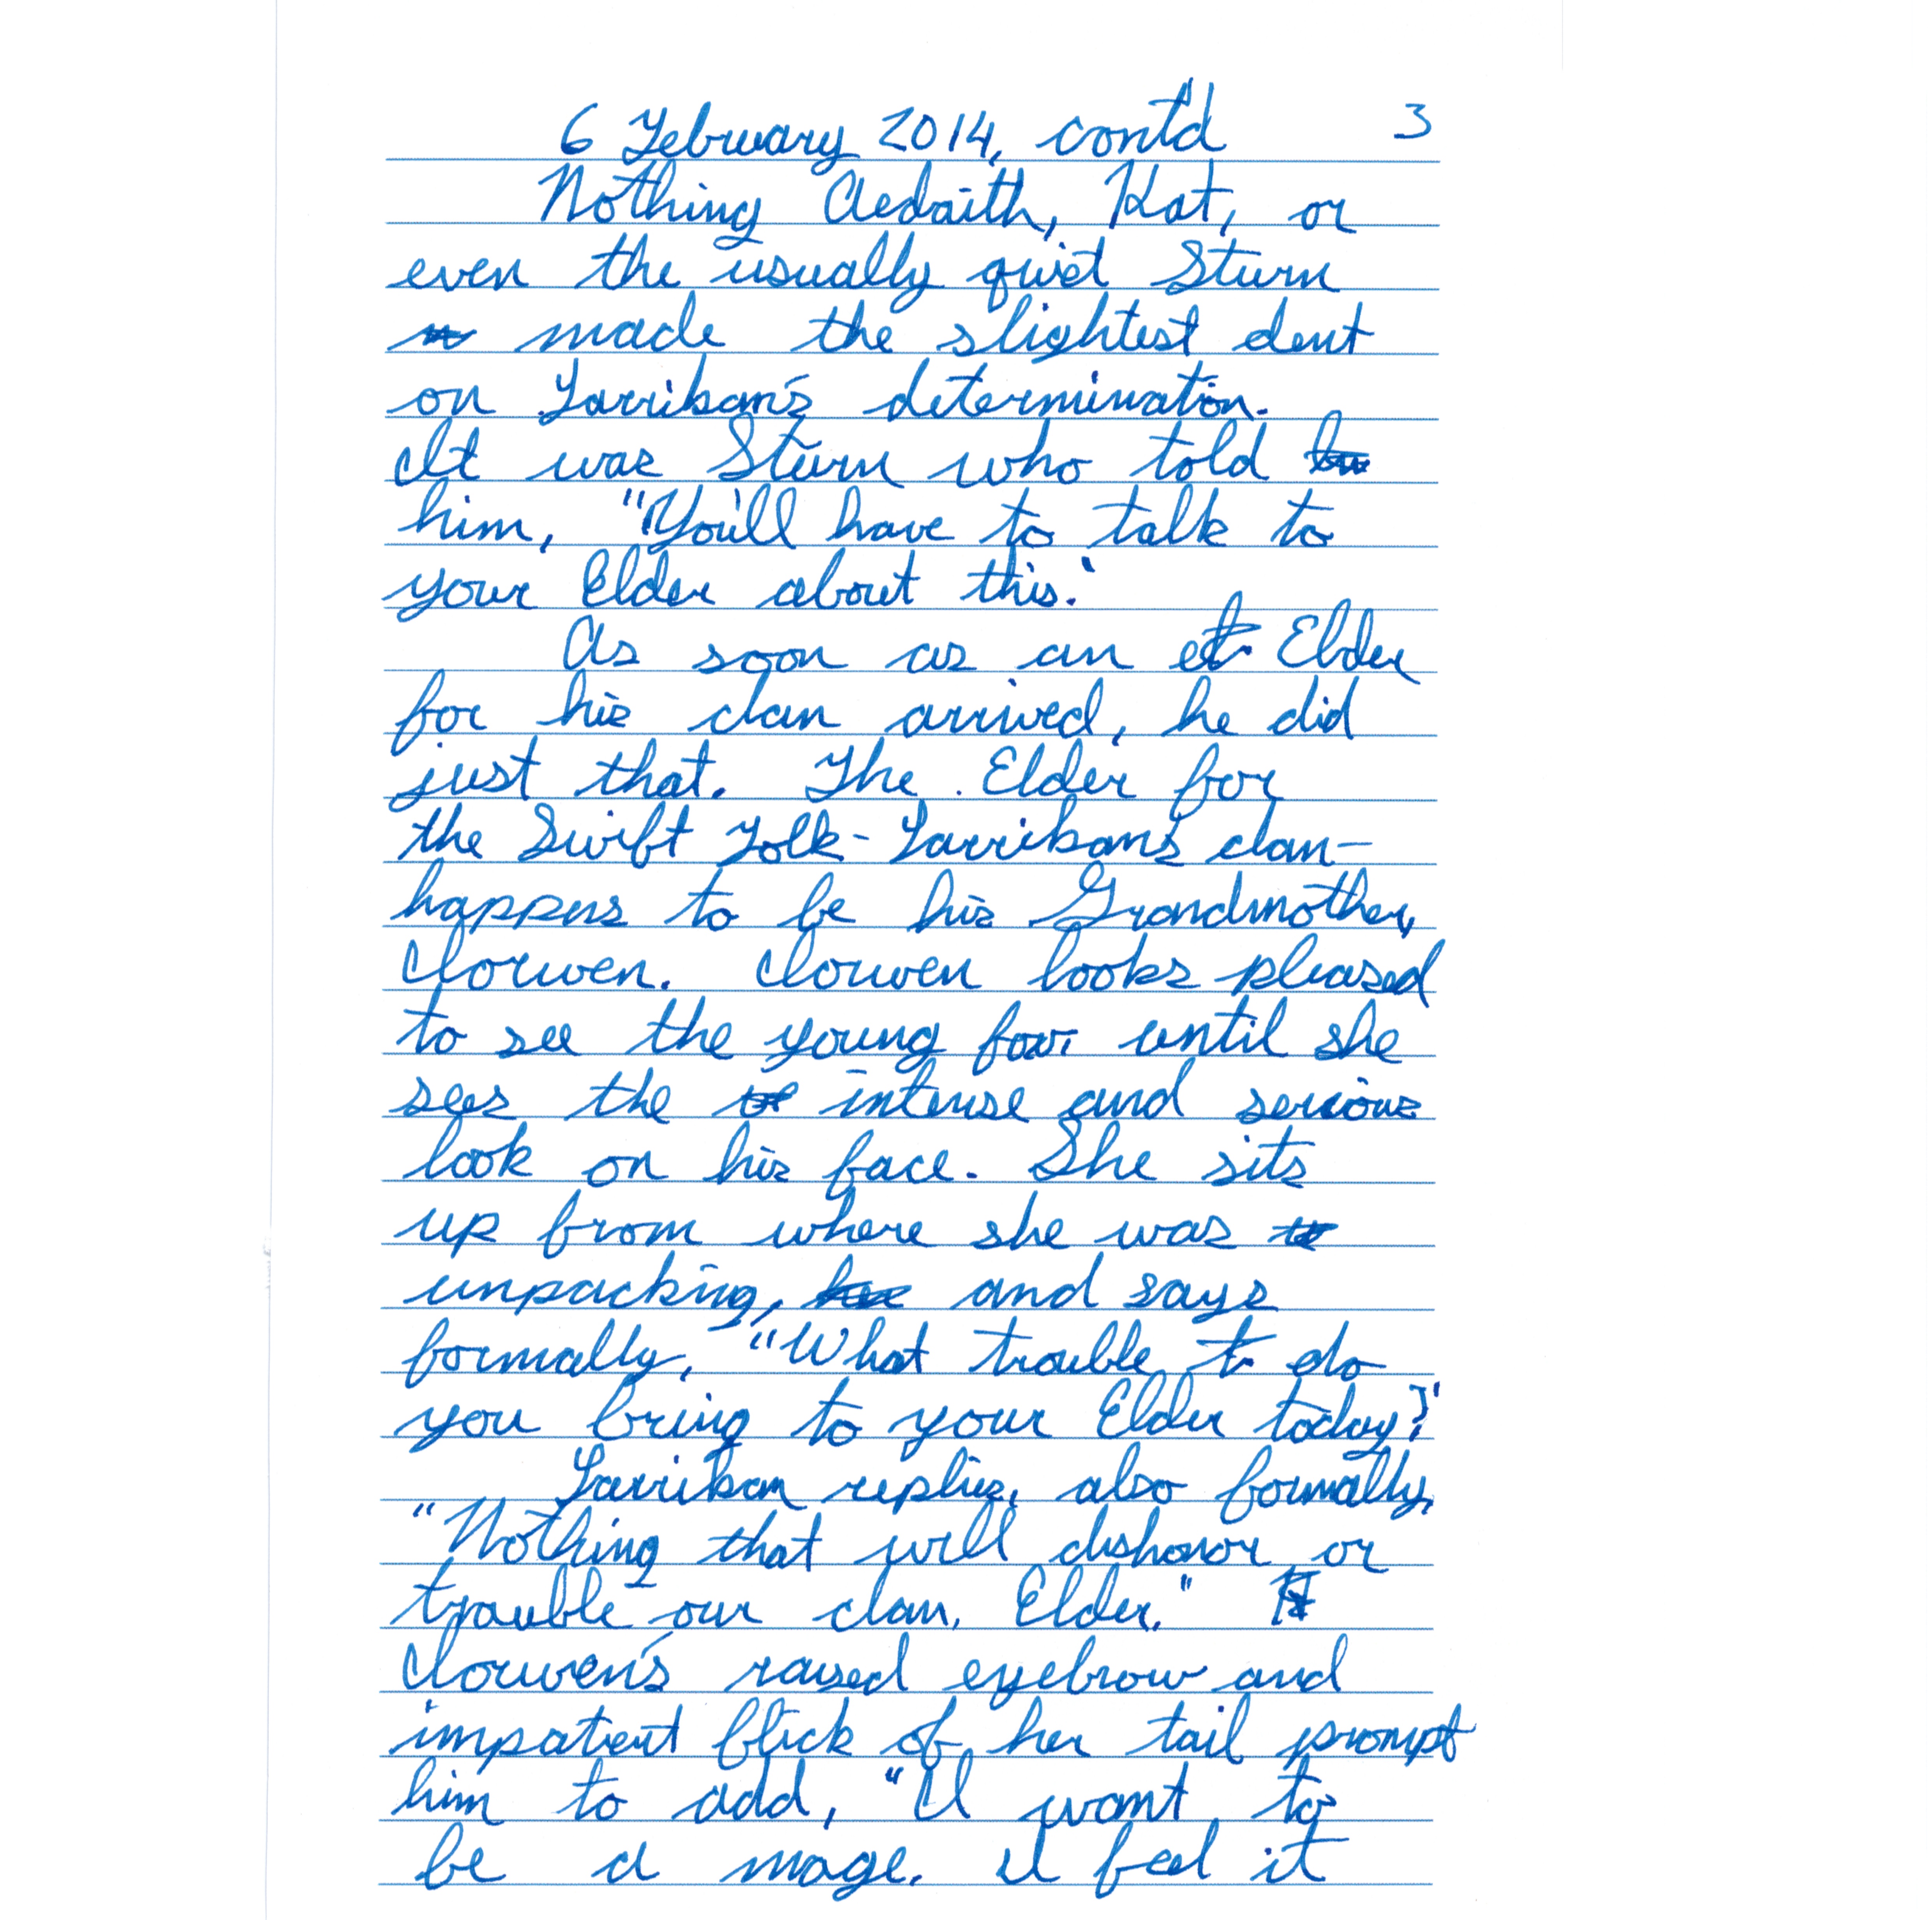 6 February 2014, cont'd 3
Nothing Aedaith, Kat, or
even the usually quiet Sturn
made the slightest dent
on Larrikan's determination.
It was Sturn who told
him, "You'll have to talk to
your Elder about this."
As soon as an Elder
for his clan arrived, he did
just that. The Elder for
the Swift Folk - Larrikan's clan -
happens to be his Grandmother,
Clorwen. Clorwen looks pleased
to see the young fox until she
sees the intense and serious
look on his face. She sits
up from where she was
unpacking, and says
formally, "What trouble do
you bring to your Elder today?"
Larrikan replies, also formally,
"Nothing that will dishonor or
trouble our clan, Elder."
Clorwen's raised eyebrow and
impatient flick of her tail prompt
him to add, "I want to
be a mage. I feel it